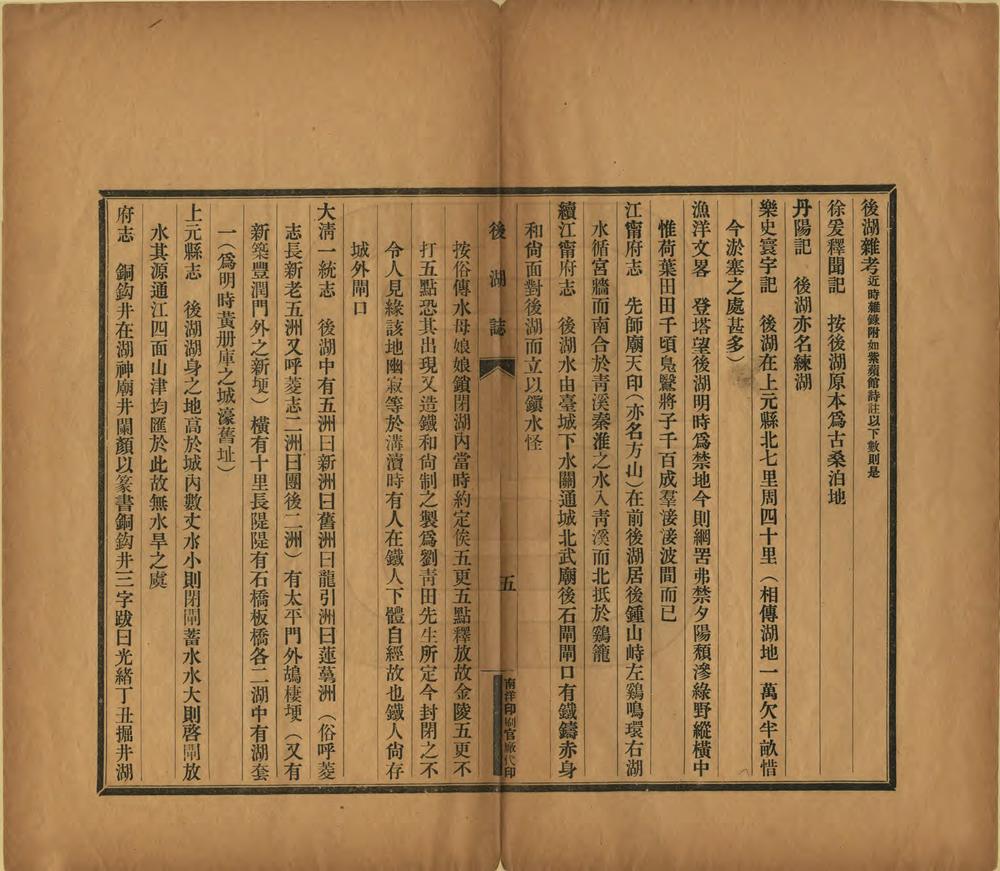 後湖雜考近時雜錄附如紫蘋館詩註以下數則是
徐爰釋聞記　按後湖原本爲古桑泊地
丹陽記　後湖亦名練湖
樂史寰宇記　後湖在上元縣北七里周四十里（相傳湖地一萬欠半畝惜
今淤塞之處甚多）
漁洋文畧　登塔望後湖明時爲禁地今則網罟弗禁夕陽頽滲綠野縱橫中
惟荷葉田田千頃鳧鷖將子千百成羣淁淁波間而已
江甯府志　先師廟天印（亦名方山）在前後湖居後鍾山峙左鷄鳴環右湖
水循宮牆而南合於靑溪秦淮之水入靑溪而北抵於鷄籠
續江甯府志　後湖水由臺城下水關通城北武廟後石閘閘口有鐵鑄赤身
和尙面對後湖而立以鎭水怪
後湖誌
五
南洋印刷官廠代印
按俗傳水母娘娘鎖閉湖內當時約定俟五更五點釋放故金陵五更不
打五點恐其出現又造鐵和尙制之製爲劉靑田先生所定今封閉之不
令人見緣該地幽寂等於溝瀆時有人在鐵人下體自經故也鐵人尙存
城外閘口
大淸一統志　後湖中有五洲曰新洲曰舊洲曰龍引洲曰蓮蕚洲（俗呼菱
志長新老五洲又呼菱志二洲曰團後二洲）有太平門外鴣棲埂（又有
新築豐潤門外之新埂）橫有十里長隄隄有石橋板橋各二湖中有湖套
一（爲明時黃册庫之城濠舊址）
上元縣志　後湖湖身之地高於城內數丈水小則閉閘蓄水水大則啓閘放
水其源通江四面山津均匯於此故無水旱之虞
府志　銅鈎井在湖神廟井闌顏以篆書銅鈎井三字跋曰光緒丁丑掘井湖